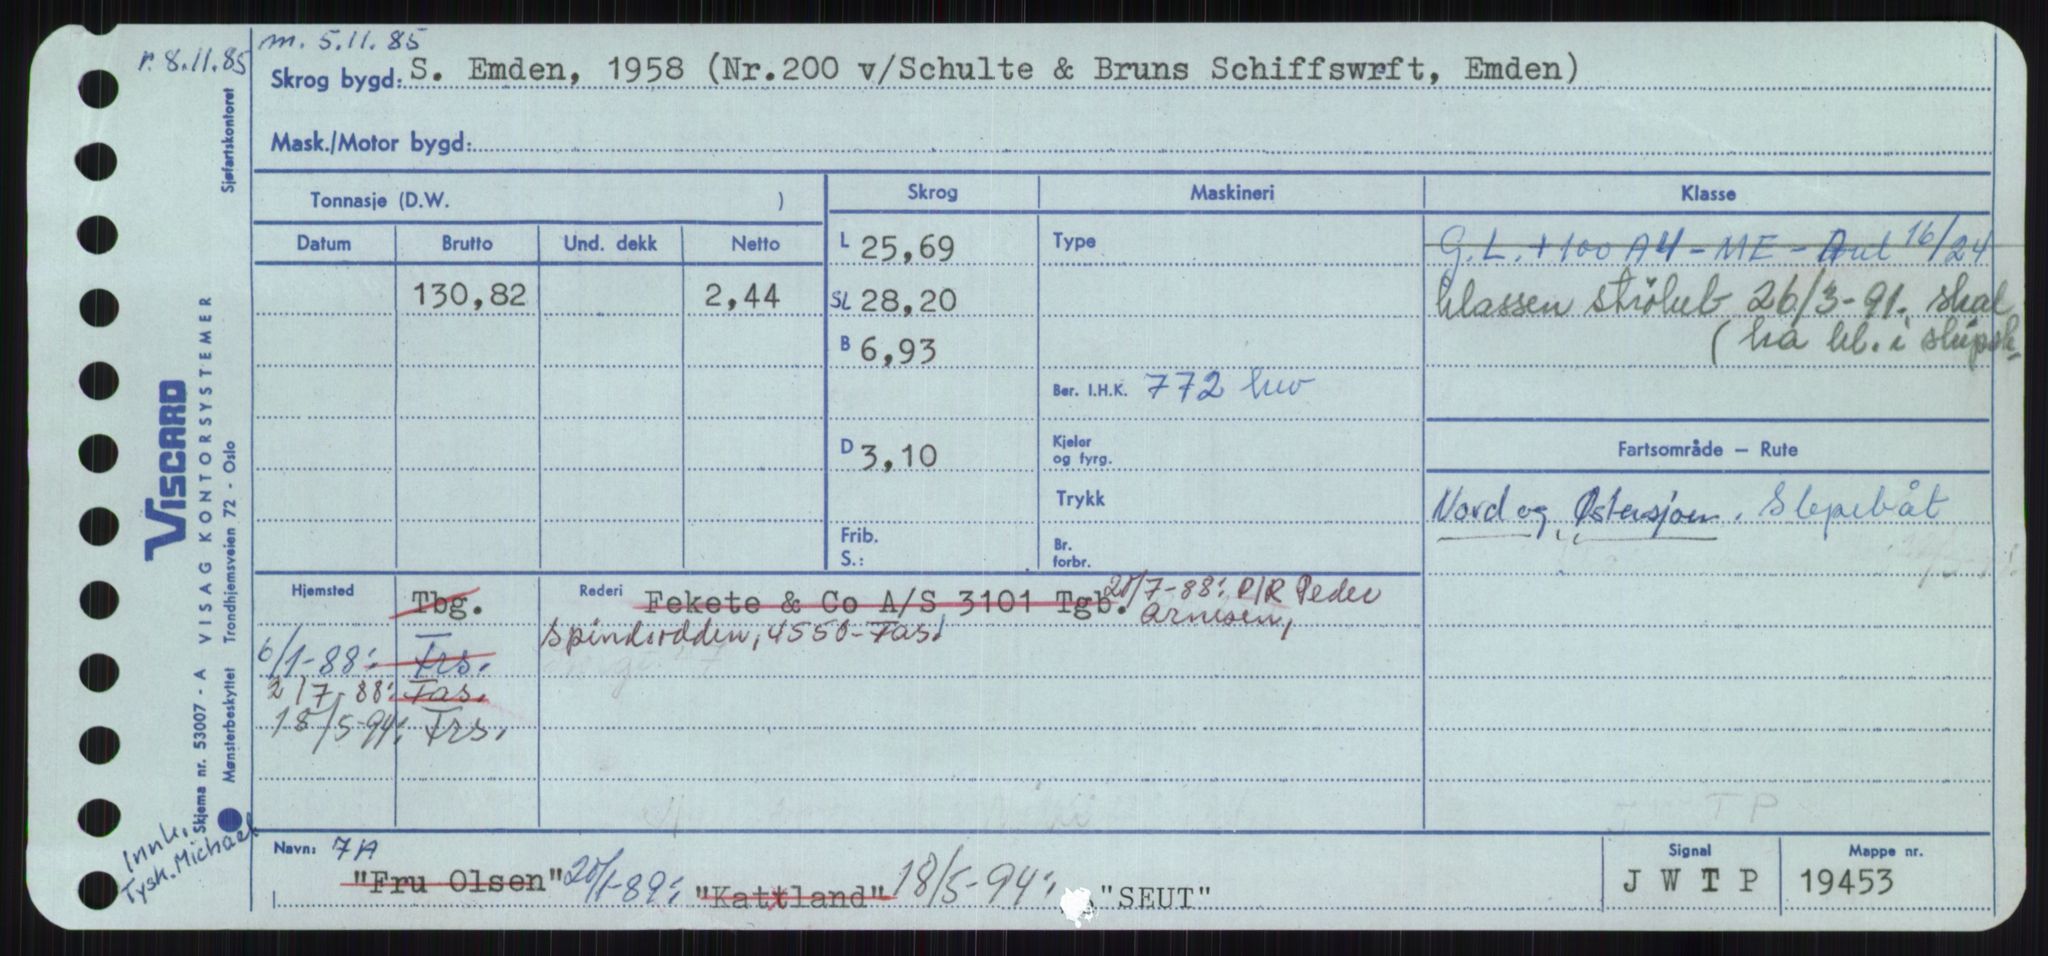 r. 8.11.85
m. 5.11.85
Skrog bygd: S. Emden, 1958 (Nr.200 v/Schulte & Bruns Schiffswrft, Emden)
Mask./Motor bygd:
Tonnasje (D.W. )
Skrog
Maskineri
Klasse
Datum
Brutto
Und. dekk
Netto
130,82
2,44
L 25,69
SL 28,20
B 6,93
D 3,10
Frib.
S.:
Type
Ber. I.H.K. 772 hw
Kjeler
og fyrg.
Trykk
Br.
forbr.
G.L. + 100 A4 - ME - Aut 16/24
klassen strøket 26/3-91. skal
(ha kl. i skipsk.
Fartsområde — Rute
Nord og Østersjøen. Slepebåt
Hjemsted
Tbg.
6/1-88: Frs.
2/7-88: Fas.
18/5-94: Frs.
Rederi Fekete & Co A/S 3101 Tgb. 20/7-88: P/R Peder
Arnesen,
Spindsodden, 4550-Fas.
Navn: 7A
"Fru Olsen" 20/1-89: "Kattland" 18/5-94: "SEUT"
Signal
J W T P
Mappe nr.
19453
Sjøfartskontoret
VISCARD
VISAG KONTORSYSTEMER
Skjema nr. 53007 - A
Mønsterbeskyttet Trondhjemsveien 72 - Oslo
Innk.
Tysk. Michael